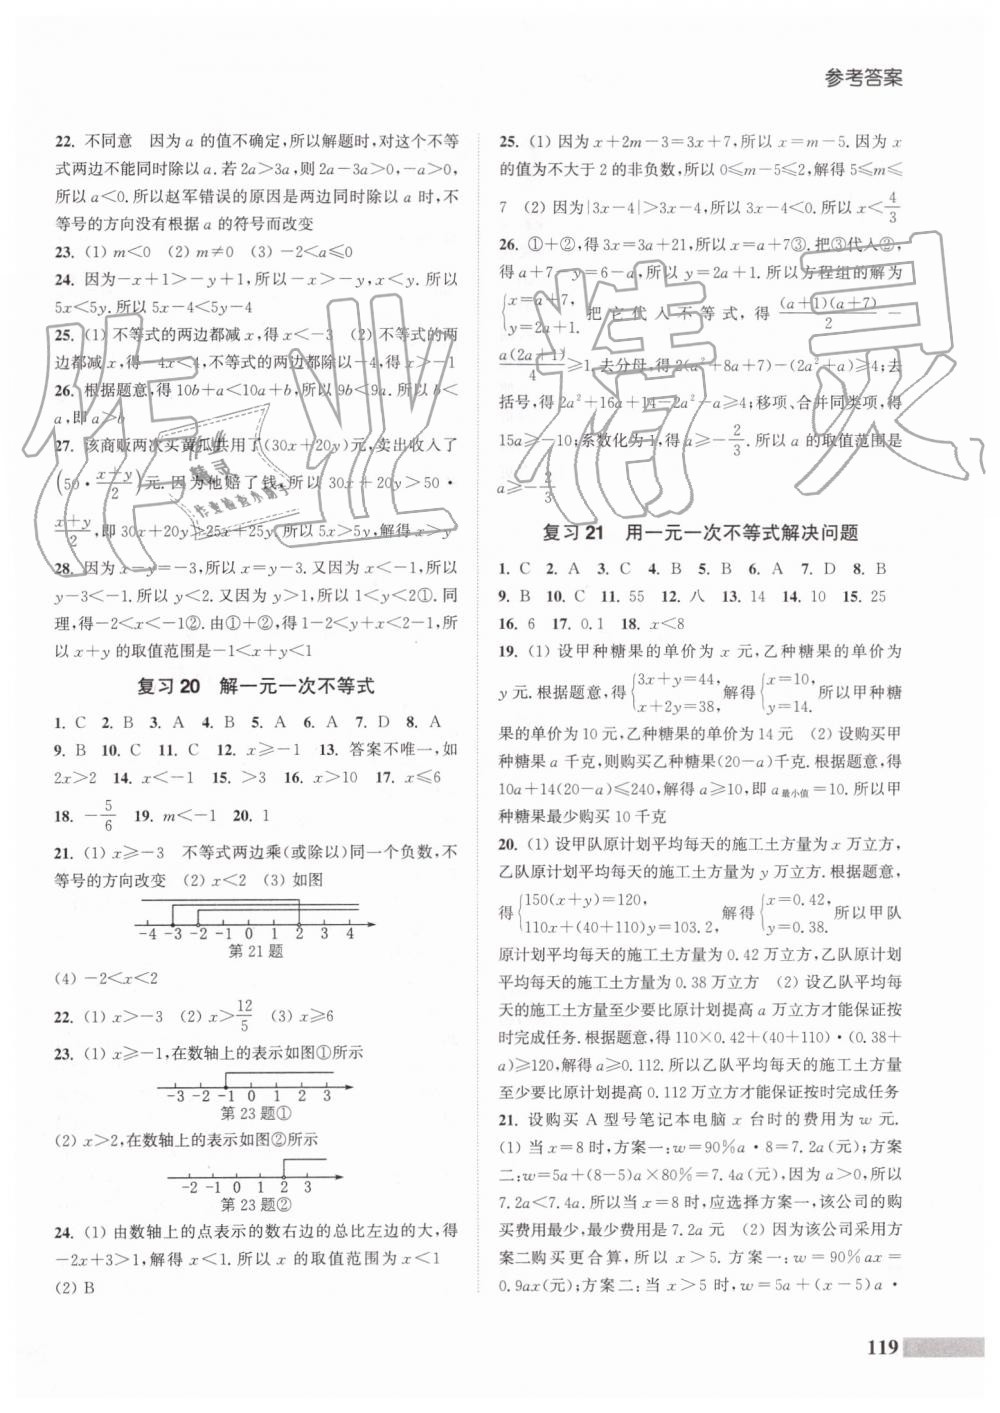 参考答案
22. 不同意　因为 a 的值不确定,所以解题时,对这个不等
式两边不能同时除以 a.若 2a>3a,则 2a-3a>0,-a>0,
所以 a<0.所以赵军错误的原因是两边同时除以 a 时,不
等号的方向没有根据 a 的符号而改变
23. (1) m<0 (2) m≠0 (3) -2<a≤0
24. 因为-x+1>-y+1,所以-x>-y,x<y.所以
5x<5y.所以 5x-4<5y-4
25. (1) 不等式的两边都减 x,得 x<-3 (2) 不等式的两
边都减 x,得-4x<4,不等式的两边都除以-4,得 x>-1
26. 根据题意,得 10b+a<10a+b,所以 9b<9a.所以 b<
a,即 a>b
27. 该商贩两次买黄瓜共用了(30x+20y)元,卖出收入了
(50·(x+y)/2)元.因为他赔了钱,所以 30x+20y>50·
(x+y)/2,即 30x+20y>25x+25y.所以 5x>5y,解得 x>y
28. 因为 x-y=-3,所以 x=y-3.又因为 x<-1,所以
y-3<-1.所以 y<2.又因为 y>1,所以 1<y<2①.同
理,得-2<x<-1②.由①+②,得 1-2<y+x<2-1,所
以 x+y 的取值范围是-1<x+y<1
复习 20　解一元一次不等式
1. C 2. B 3. A 4. B 5. A 6. A 7. D 8. A
9. B 10. C 11. C 12. x≥-1 13. 答案不唯一,如
2x>2 14. x<-1 15. >3 16. x>10 17. x≤6
18. -5/6 19. m<-1 20. 1
21. (1) x≥-3　不等式两边乘(或除以)同一个负数,不
等号的方向改变 (2) x<2 (3) 如图
-4 -3 -2 -1 0 1 2 3 4
第 21 题
(4) -2<x<2
22. (1) x>-3 (2) x>12/5 (3) x≥6
23. (1) x≥-1,在数轴上的表示如图①所示
-3 -2 -1 0 1 2 3
第 23 题①
(2) x>2,在数轴上的表示如图②所示
-2 -1 0 1 2 3
第 23 题②
24. (1) 由数轴上的点表示的数右边的总比左边的大,得
-2x+3>1,解得 x<1.所以 x 的取值范围为 x<1
(2) B
25. (1) 因为 x+2m-3=3x+7,所以 x=m-5.因为 x
的值为不大于 2 的非负数,所以 0≤m-5≤2,解得 5≤m≤
7 (2) 因为|3x-4|>3x-4,所以 3x-4<0.所以 x<4/3
26. ①+②,得 3x=3a+21,所以 x=a+7③.把③代人②,
得 a+7-y=6-a,所以 y=2a+1.所以方程组的解为
{x=a+7, y=2a+1. 把它代人不等式,得 (a+1)(a+7)/2 -
a(2a+1)/4≥1,去分母,得 2(a²+8a+7)-(2a²+a)≥4;去
括号,得 2a²+16a+14-2a²-a≥4;移项、合并同类项,得
15a≥-10;系数化为 1,得 a≥-2/3.所以 a 的取值范围是
a≥-2/3
复习 21　用一元一次不等式解决问题
1. C 2. A 3. C 4. B 5. B 6. A 7. D 8. B
9. B 10. C 11. 55 12. 八 13. 14 14. 10 15. 25
16. 6 17. 0.1 18. x<8
19. (1) 设甲种糖果的单价为 x 元,乙种糖果的单价为
y 元.根据题意,得{3x+y=44, x+2y=38, 解得{x=10, y=14. 所以甲种糖
果的单价为 10 元,乙种糖果的单价为 14 元 (2) 设购买甲
种糖果 a 千克,则购买乙种糖果(20-a)千克.根据题意,得
10a+14(20-a)≤240,解得 a≥10,即 a最小值=10.所以甲
种糖果最少购买 10 千克
20. (1) 设甲队原计划平均每天的施工土方量为 x 万立方,
乙队原计划平均每天的施工土方量为 y 万立方.根据题意,
得{150(x+y)=120, 110x+(40+110)y=103.2, 解得{x=0.42, y=0.38. 所以甲队
原计划平均每天的施工土方量为 0.42 万立方,乙队原计划平
均每天的施工土方量为 0.38 万立方 (2) 设乙队平均每
天的施工土方量至少要比原计划提高 a 万立方才能保证按
时完成任务.根据题意,得 110×0.42+(40+110)·(0.38+
a)≥120,解得 a≥0.112.所以乙队平均每天的施工土方量
至少要比原计划提高 0.112 万立方才能保证按时完成任务
21. 设购买 A 型号笔记本电脑 x 台时的费用为 w 元.
(1) 当 x=8 时,方案一:w=90%a·8=7.2a(元);方案
二:w=5a+(8-5)a×80%=7.4a(元),因为 a>0,所以
7.2a<7.4a.所以当 x=8 时,应选择方案一,该公司的购
买费用最少,最少费用是 7.2a 元 (2) 因为该公司采用方
案二购买更合算,所以 x>5.方案一:w=90%ax=
0.9ax(元);方案二:当 x>5 时,w=5a+(x-5)a·
119
作业精灵